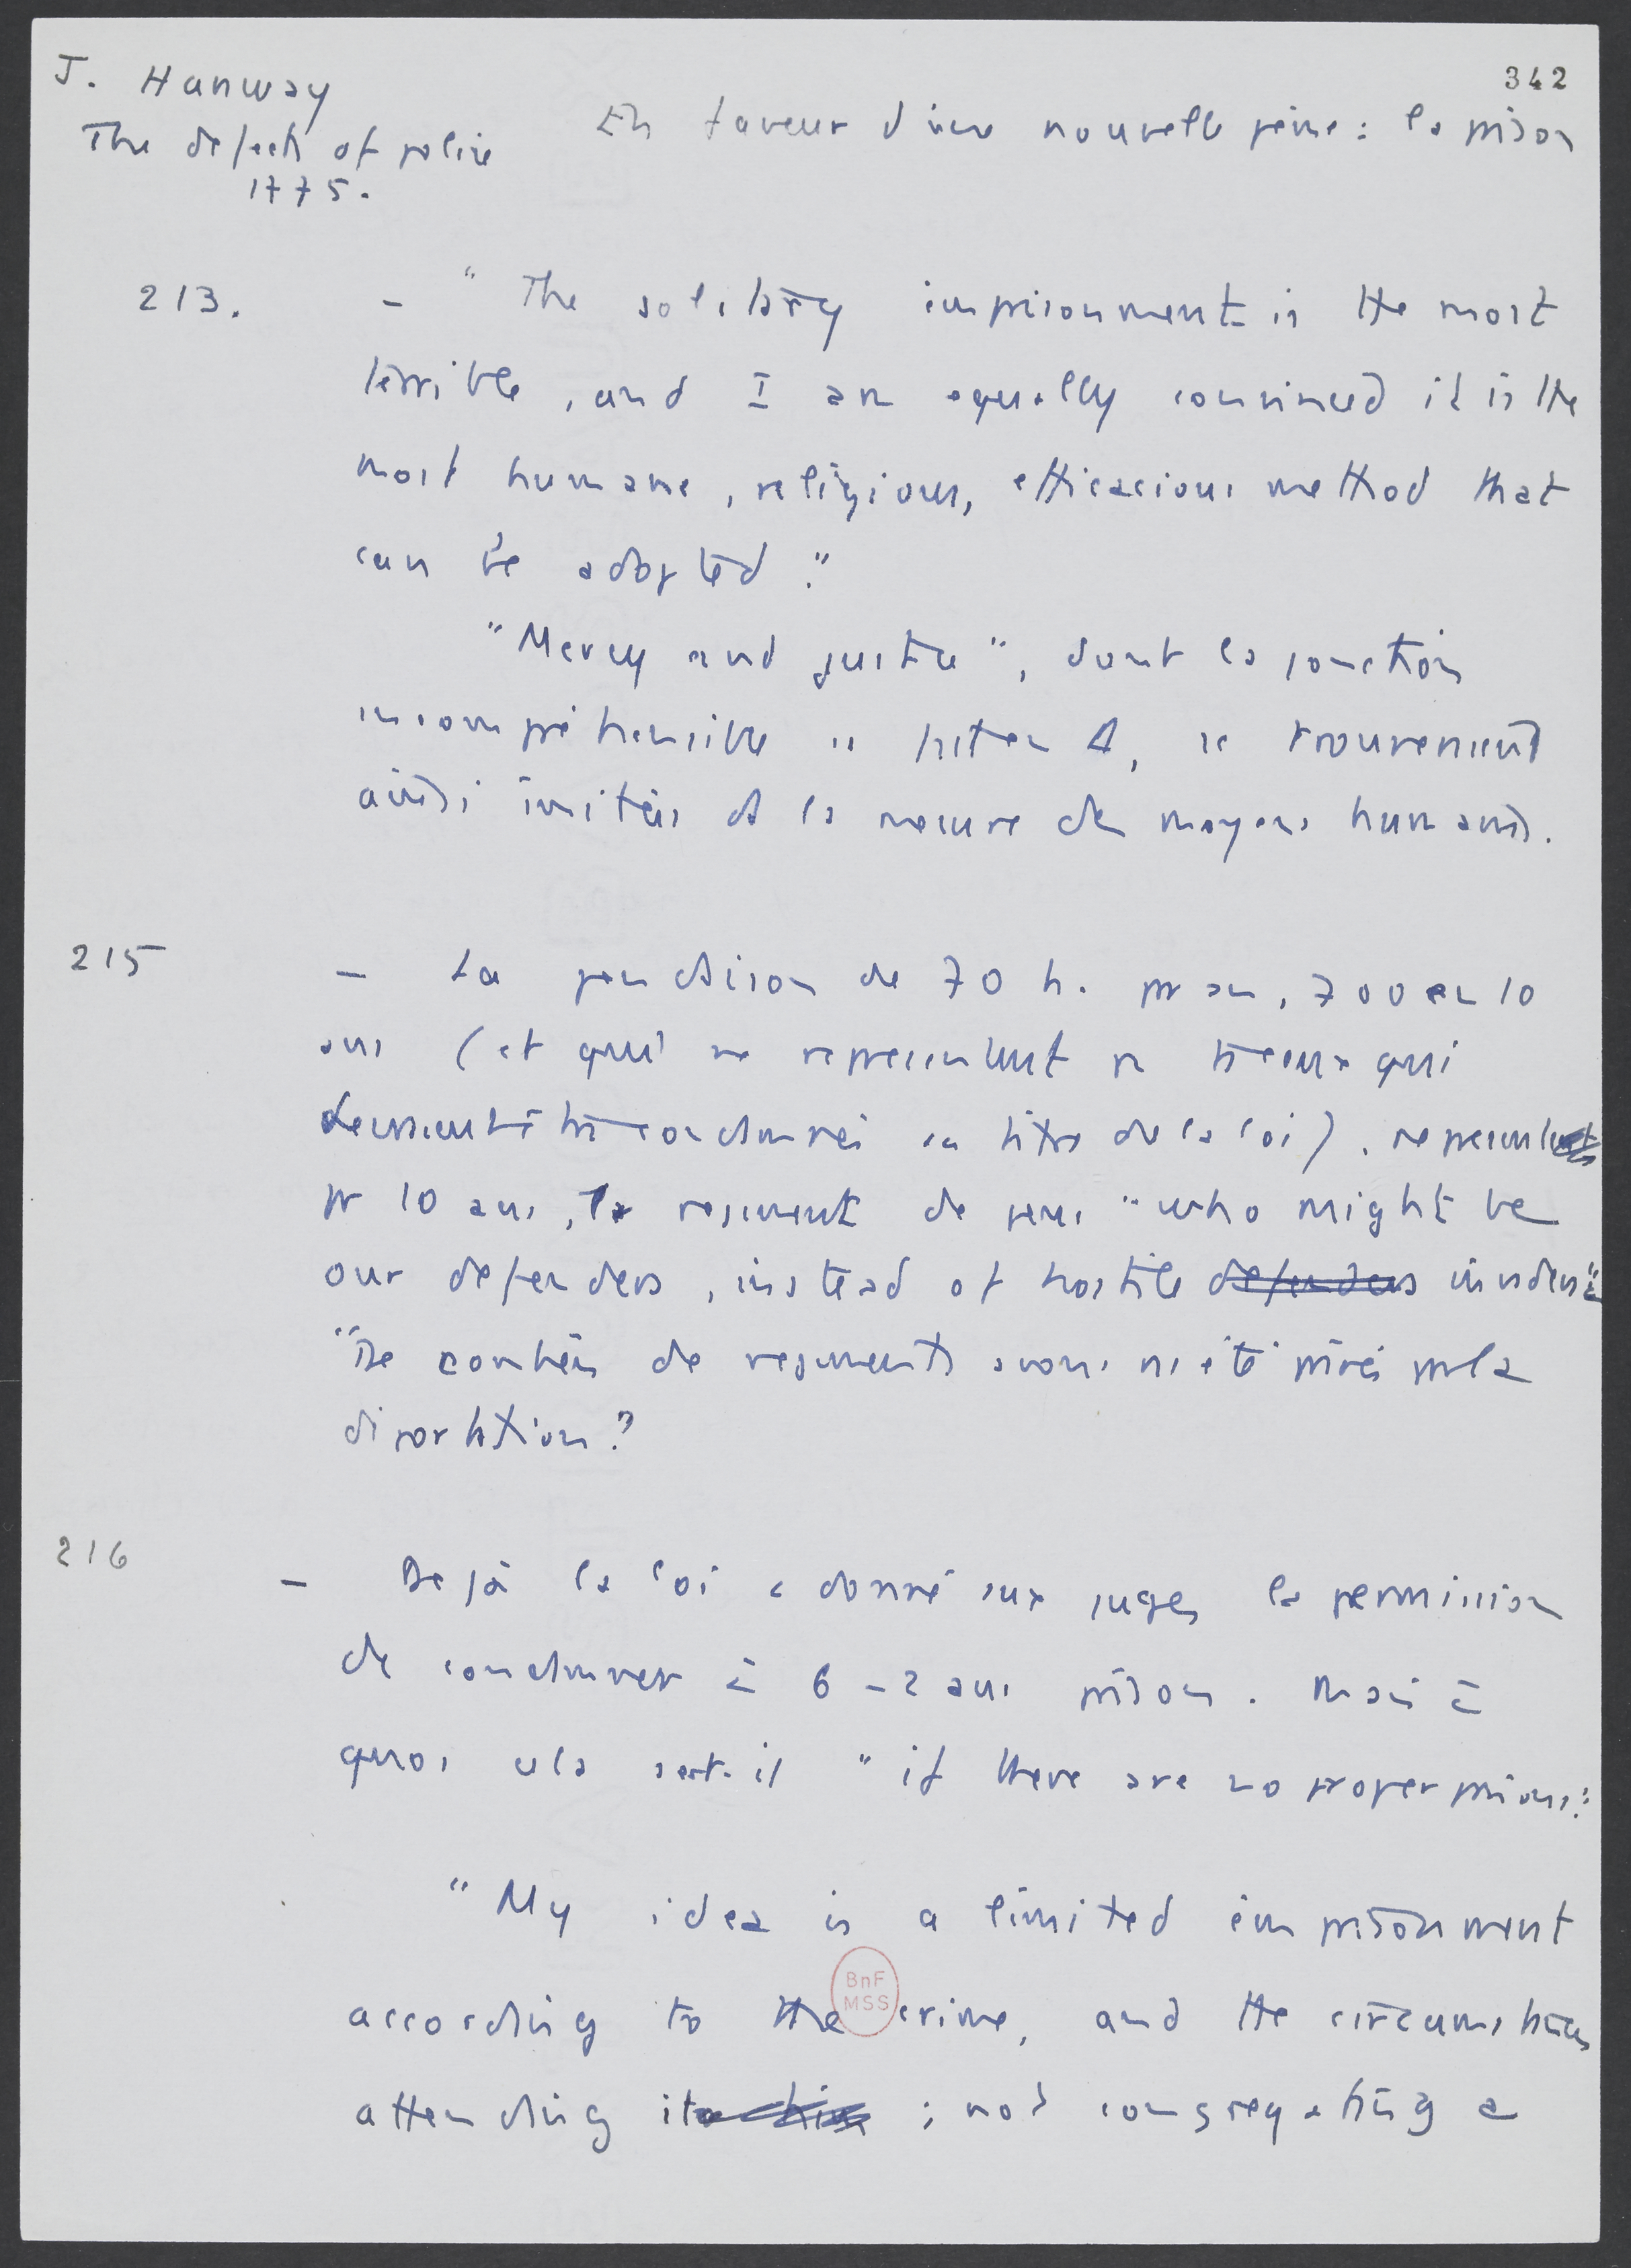 342
J. Hanway
The defects of police
1775.
En faveur d'une nouvelle peine : la prison
213. – "The solitary imprisonment is the most
terrible, and I am equally convinced it is the
most humane, religious, efficacious method that
can be adopted."
"Mercy and justice", dont la jonction
incompréhensible est en, se trouveraient
ainsi imitées à la mesure des moyens humains.
215 – La pendaison de 70 h. par an, 700 en 10
ans (et qui ne représentent pas tous ceux qui
devraient être condamnés au titre de la loi), représentent
pr 10 ans, le régiment de gens "who might be
our defenders, instead of hostile defenders invaders"
"De combien de régiments avons ns été privés par la
déportation?
216 – Déjà la loi a donné aux juges la permission
de condamner à 6 – 2 ans prison. Mais à
quoi cela sert-il "if there are no proper prisons".
"My idea is a limited imprisonment
according to the crime, and the circumstances
attending it ; not congregating a
BnF
MSS